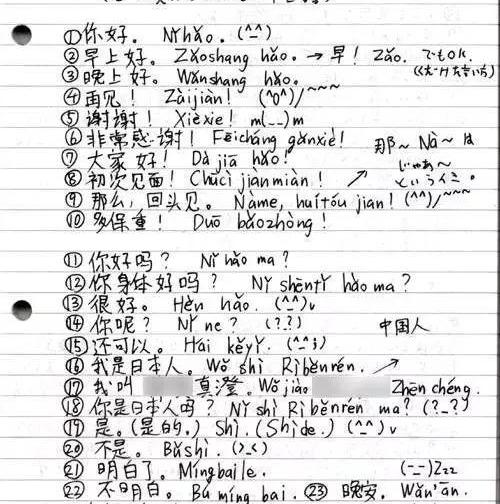 ①你好。 Nǐ hǎo. (^^)
②早上好。 Zǎoshang hǎo. → 早! Zǎo. でもOK.
③晚上好。 Wǎnshang hǎo.
④再见! Zàijiàn! (^o^)/~~~
⑤谢谢! Xièxie! m(__)m
⑥非常感谢! Fēicháng gǎnxiè! 那~ Nà~ は
⑦大家好! Dà jiā hǎo! じゃあ~
⑧初次见面! Chūcì jiànmiàn! ↗ というイミ。
⑨那么,回头见。 Nàme, huítóu jian! (^^)/~~~
⑩多保重! Duō bǎozhòng!
⑪你好吗? Nǐ hǎo ma?
⑫你身体好吗? Nǐ shēntǐ hǎo ma?
⑬很好。 Hěn hǎo. (^^)v
⑭你呢? Nǐ ne? (?.?) 中国人
⑮还可以。 Hái kěyǐ. (^^;)
⑯我是日本人。 Wǒ shì Rìběnrén. ↗
⑰我叫 真澄。 Wǒ jiào Zhēn chéng.
⑱你是日本人吗? Nǐ shì Rìběnrén ma? (?_?)
⑲是。(是的。) Shì. (Shìde.) (^^)v
⑳不是。 Búshì. (>_<)
㉑明白了。 Míngbaile. (-_-)Zzz
㉒不明白。 Bù míng bai. ㉓晚安。 Wǎn'ān.